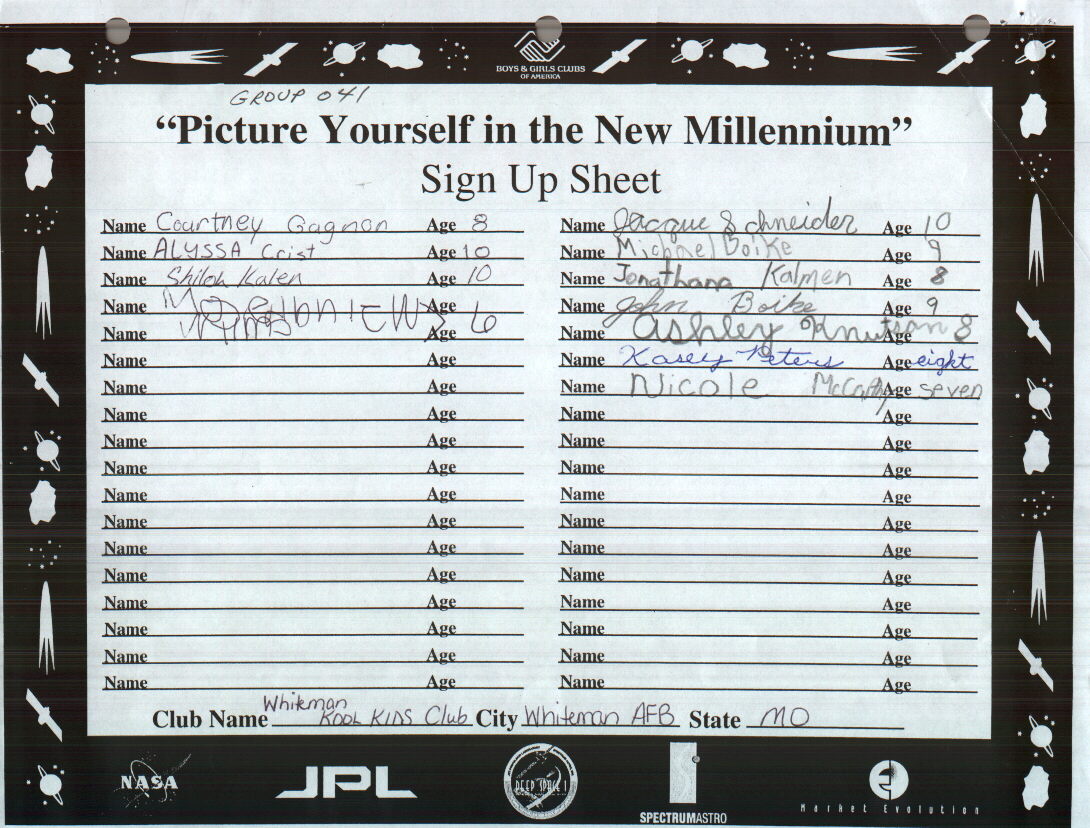 BOYS & GIRLS CLUBS
OF AMERICA
GROUP 041
“Picture Yourself in the New Millennium”
Sign Up Sheet
Name Courtney Gagnon Age 8
Name ALYSSA Crist Age 10
Name Shiloh Kalen Age 10
Name Age 6
Name Age
Name Age
Name Age
Name Age
Name Age
Name Age
Name Age
Name Age
Name Age
Name Age
Name Age
Name Age
Name Age
Name Age
Name Jacque Schneider Age 10
Name Michael Boike Age 9
Name Jonathana Kalmen Age 8
Name John Boike Age 9
Name Ashley Knutson Age 8
Name Kasey Peters Age eight
Name Nicole McCarthy Age seven
Name Age
Name Age
Name Age
Name Age
Name Age
Name Age
Name Age
Name Age
Name Age
Name Age
Name Age
Club Name Whiteman KOOL KIDS Club City Whiteman AFB State MO
NASA
JPL
DEEP SPACE 1
SPECTRUMASTRO
Market Evolution